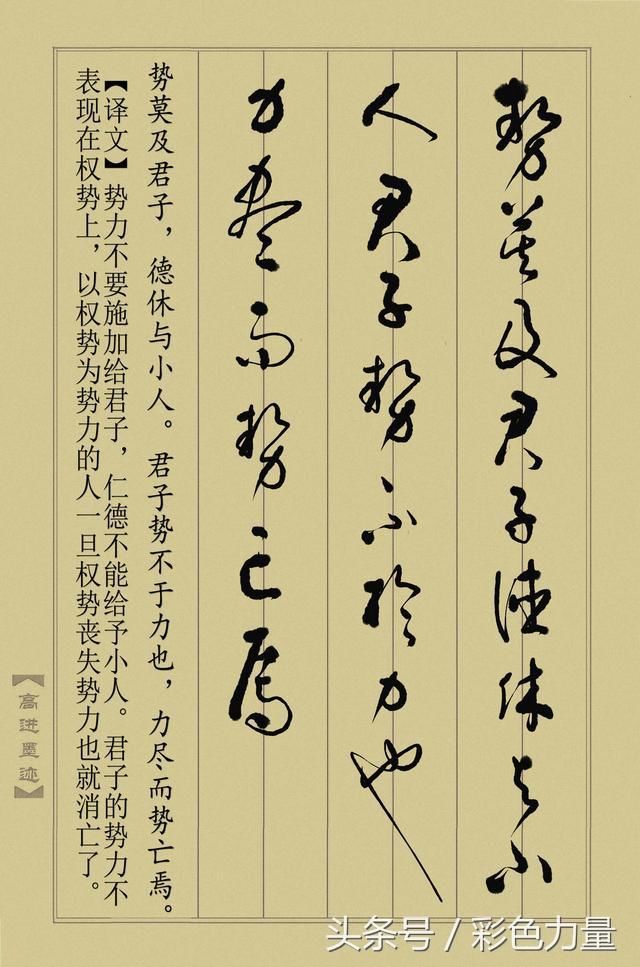 势莫及君子德休与小
人君子势不于力也
力尽而势亡焉
势莫及君子，德休与小人。君子势不于力也，力尽而势亡焉。
【译文】势力不要施加给君子，仁德不能给予小人。君子的势力不
表现在权势上，以权势为势力的人一旦权势丧失势力也就消亡了。
【高进墨迹】
头条号 / 彩色力量